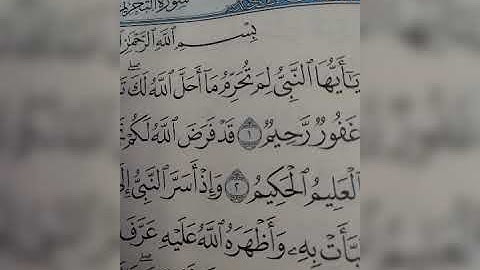 سُورَةُ التَّحْرِيمِ
بِسْمِ اللَّهِ الرَّحْمَٰنِ
يَٰٓأَيُّهَا ٱلنَّبِيُّ لِمَ تُحَرِّمُ مَآ أَحَلَّ ٱللَّهُ لَكَۖ
غَفُورٌ رَّحِيمٌ ١ قَدْ فَرَضَ ٱللَّهُ لَكُمْ
ٱلْعَلِيمُ ٱلْحَكِيمُ ٢ وَإِذْ أَسَرَّ ٱلنَّبِيُّ إِلَىٰ
نَبَّأَتْ بِهِۦ وَأَظْهَرَهُ ٱللَّهُ عَلَيْهِ عَرَّفَ